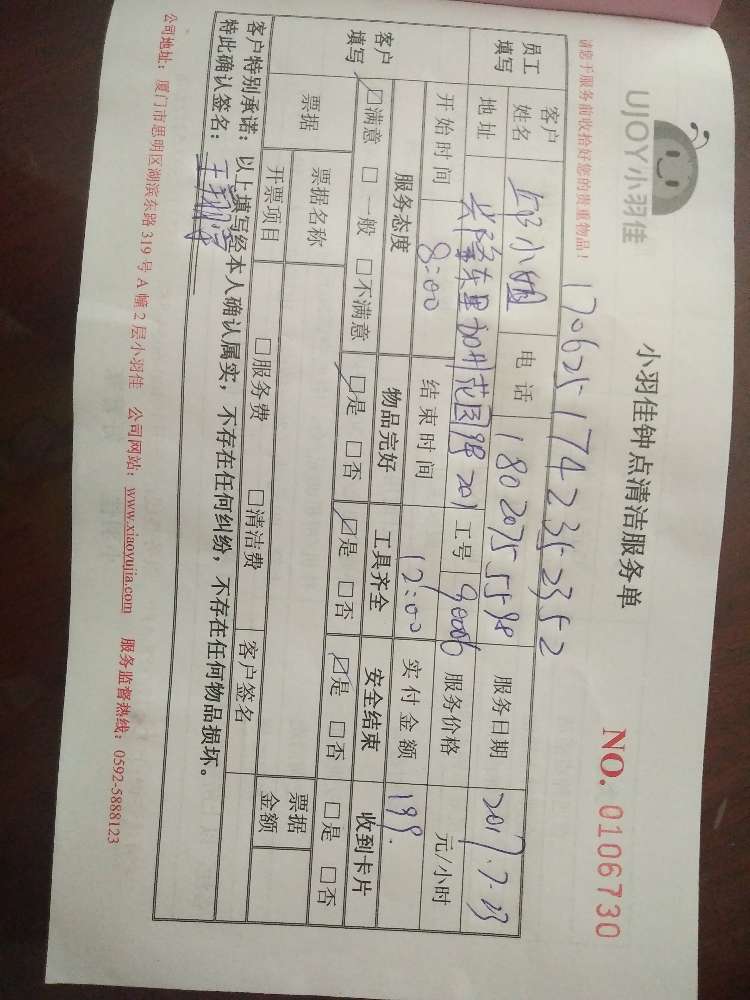 UJOY小羽佳
小羽佳钟点清洁服务单
NO. 0106730
请您于服务前收拾好您的贵重物品！
1706251742352352
员工填写 客户姓名 小姐 电话 18020755598 服务日期 2017.7.23
地址 兴隆东里加州花园 201 工号 90006 服务价格 元/小时
开始时间 8:00 结束时间 12:00 实付金额 199.
客户填写 服务态度 物品完好 工具齐全 安全结束 收到卡片
☑满意 □一般 □不满意 ☑是 □否 ☑是 □否 ☑是 □否 □是 □否
票据 票据名称 □服务费 □清洁费 客户签名 票据金额
开票项目
客户特别承诺：以上填写经本人确认属实，不存在任何纠纷，不存在任何物品损坏。
特此确认签名：王
公司地址：厦门市思明区湖滨东路 319 号 A 幢 2 层小羽佳 公司网站：www.xiaoyujia.com 服务监督热线：0592-5888123